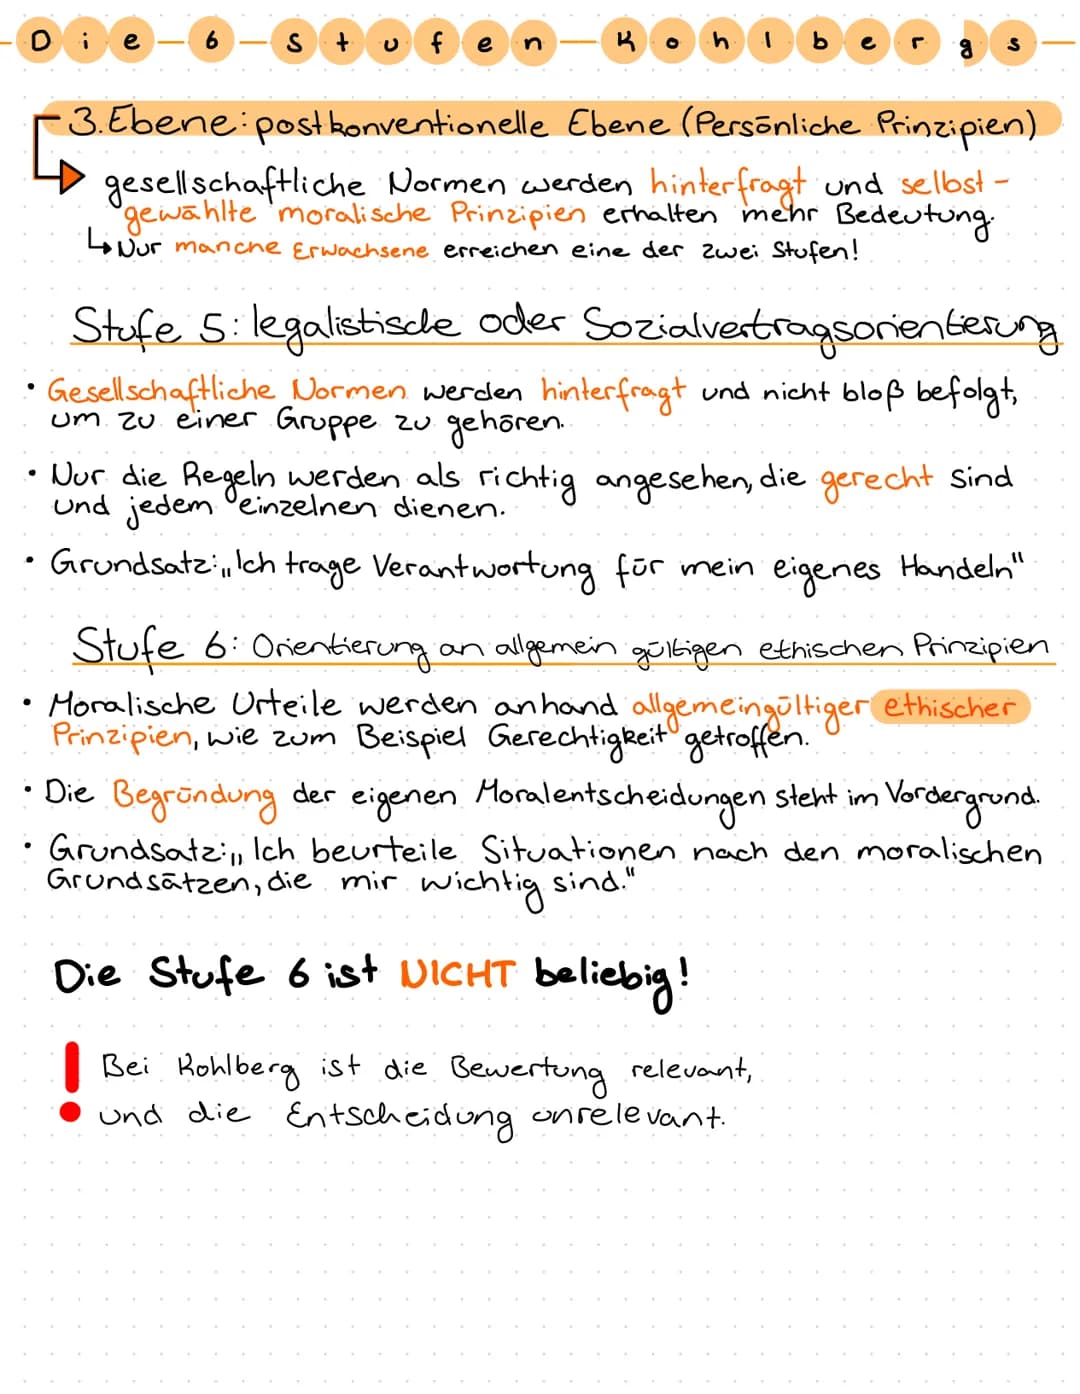 Die 6 Stufen Kohlbergs
3. Ebene: postkonventionelle Ebene (Persönliche Prinzipien)
gesellschaftliche Normen werden hinterfragt und selbst-
gewählte moralische Prinzipien erhalten mehr Bedeutung.
↳ Nur manche Erwachsene erreichen eine der zwei Stufen!
Stufe 5: legalistische oder Sozialvertragsorientierung
• Gesellschaftliche Normen werden hinterfragt und nicht bloß befolgt,
um zu einer Gruppe zu gehören.
• Nur die Regeln werden als richtig angesehen, die gerecht sind
und jedem einzelnen dienen.
• Grundsatz: „Ich trage Verantwortung für mein eigenes Handeln"
Stufe 6: Orientierung an allgemein gültigen ethischen Prinzipien
• Moralische Urteile werden anhand allgemeingültiger ethischer
Prinzipien, wie zum Beispiel Gerechtigkeit getroffen.
• Die Begründung der eigenen Moralentscheidungen steht im Vordergrund.
• Grundsatz: „Ich beurteile Situationen nach den moralischen
Grundsätzen, die mir wichtig sind."
Die Stufe 6 ist NICHT beliebig!
! Bei Kohlberg ist die Bewertung relevant,
und die Entscheidung unrelevant.